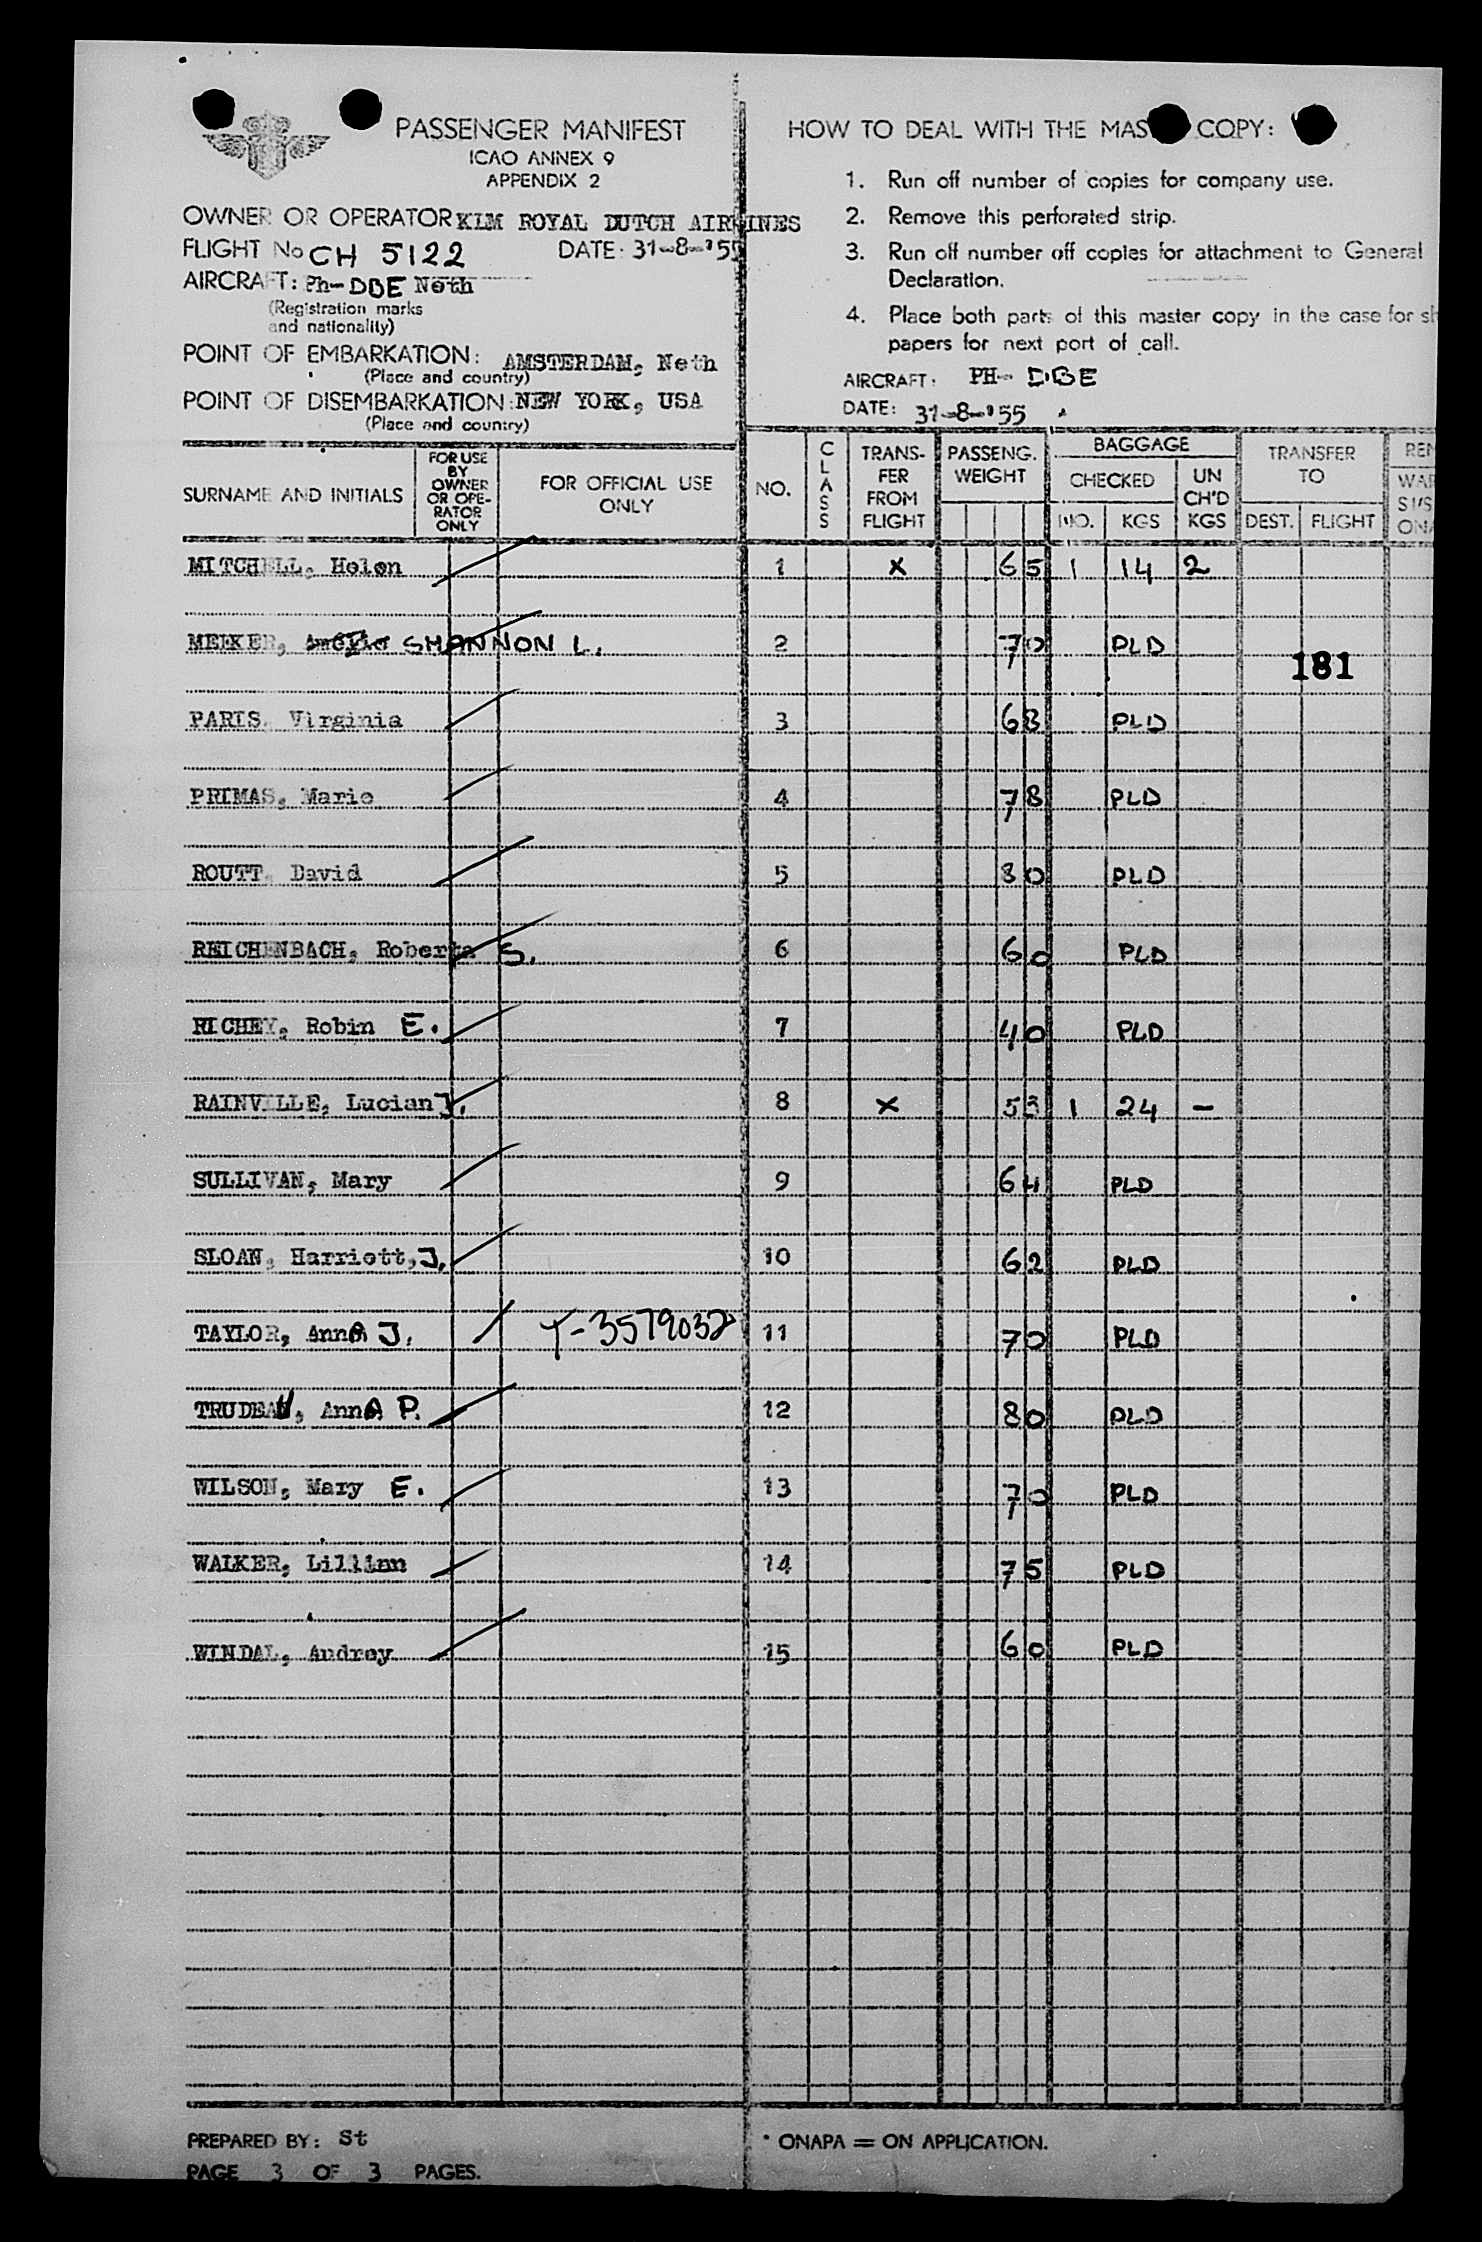 PASSENGER MANIFEST
ICAO ANNEX 9
APPENDIX 2
OWNER OR OPERATOR KLM ROYAL DUTCH AIRLINES
FLIGHT No CH 5122 DATE: 31-8-'55
AIRCRAFT: Ph-DBE Neth
(Registration marks
and nationality)
POINT OF EMBARKATION: AMSTERDAM, Neth
(Place and country)
POINT OF DISEMBARKATION: NEW YORK, USA
(Place and country)
HOW TO DEAL WITH THE MAS COPY:
1. Run off number of copies for company use.
2. Remove this perforated strip.
3. Run off number off copies for attachment to General
Declaration.
4. Place both parts of this master copy in the case for sh
papers for next port of call.
AIRCRAFT: PH- DBE
DATE: 31-8-'55
SURNAME AND INITIALS
FOR USE
BY
OWNER
OR OPE-
RATOR
ONLY
FOR OFFICIAL USE
ONLY
NO.
CLASS
TRANS-
FER
FROM
FLIGHT
PASSENG.
WEIGHT
BAGGAGE
CHECKED
NO. KGS
UN
CH'D
KGS
TRANSFER
TO
DEST. FLIGHT
REM
WAR
SUS
ONA
MITCHELL, Helen 1 X 65 1 14 2
MEEKER, SHANNON L. 2 70 PLD
181
PARIS, Virginia 3 68 PLD
PRIMAS, Marie 4 78 PLD
ROUTT, David 5 80 PLD
REICHENBACH, Roberta S. 6 60 PLD
RICHEY, Robin E. 7 40 PLD
RAINVILLE, Lucian J. 8 X 53 1 24 -
SULLIVAN, Mary 9 64 PLD
SLOAN, Harriett, J. 10 62 PLD
TAYLOR, AnnA J. T-3579032 11 70 PLD
TRUDEAU, AnnA P. 12 80 PLD
WILSON, Mary E. 13 70 PLD
WALKER, Lillian 14 75 PLD
WINDAL, Audrey 15 60 PLD
PREPARED BY: St
PAGE 3 OF 3 PAGES.
* ONAPA = ON APPLICATION.